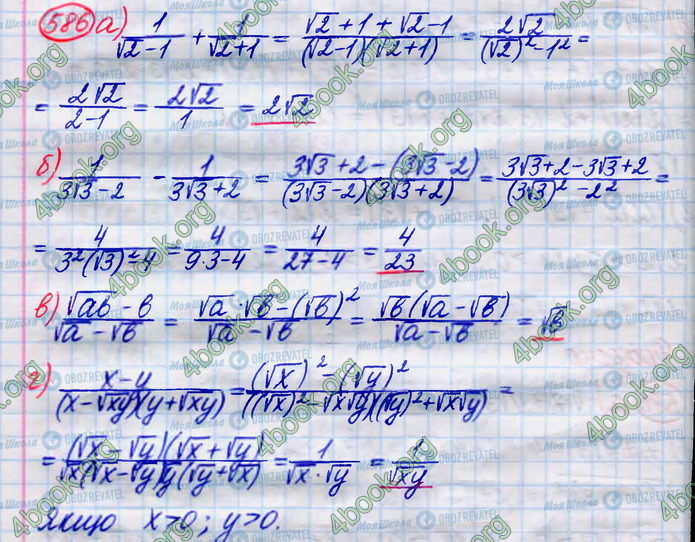 586 а) 1/(√2-1) + 1/(√2+1) = (√2+1+√2-1)/((√2-1)(√2+1)) = 2√2/((√2)²-1²) =
= 2√2/(2-1) = 2√2/1 = 2√2
б) 1/(3√3-2) - 1/(3√3+2) = (3√3+2-(3√3-2))/((3√3-2)(3√3+2)) = (3√3+2-3√3+2)/((3√3)²-2²) =
= 4/(3²(√3)²-4) = 4/(9·3-4) = 4/(27-4) = 4/23
в) (√ab-b)/(√a-√b) = (√a·√b-(√b)²)/(√a-√b) = √b(√a-√b)/(√a-√b) = √b
г) (x-y)/((x-√xy)(y+√xy)) = ((√x)²-(√y)²)/(((√x)²-√x√y)((√y)²+√x√y)) =
= (√x-√y)(√x+√y)/(√x(√x-√y)√y(√y+√x)) = 1/(√x·√y) = 1/√xy
Якщо x>0; y>0.
4book.org
Моя Школа
OBOZREVATEL